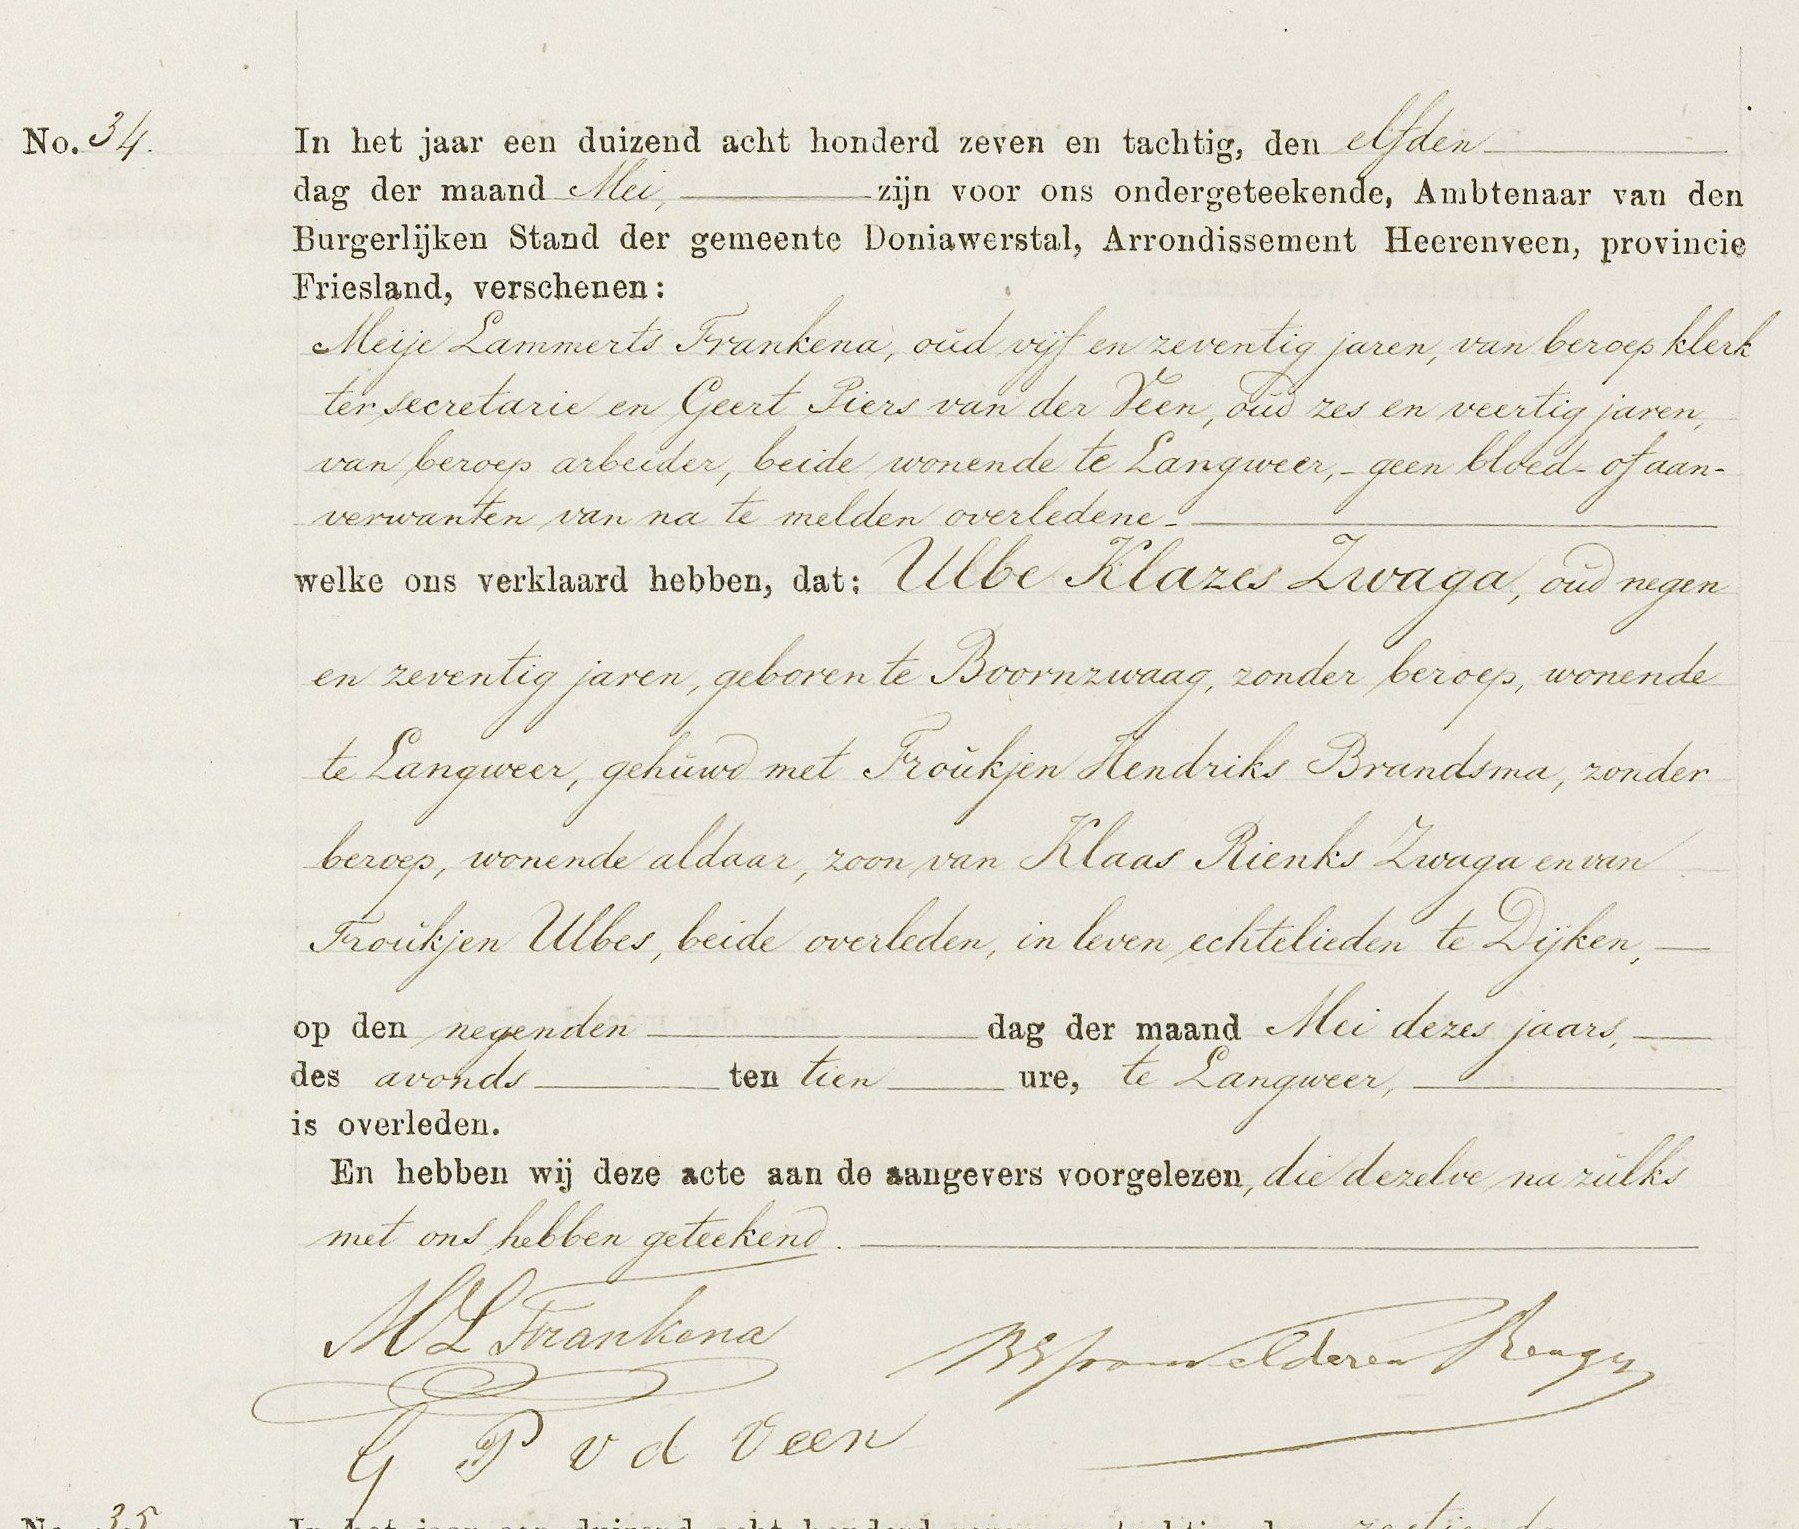 No. 34.
In het jaar een duizend acht honderd zeven en tachtig, den elfden
dag der maand Mei, zijn voor ons ondergeteekende, Ambtenaar van den
Burgerlijken Stand der gemeente Doniawerstal, Arrondissement Heerenveen, provincie
Friesland, verschenen:
Meije Lammerts Frankena, oud vijf en zeventig jaren, van beroep klerk
ter secretarie en Geert Piers van der Veen, oud zes en veertig jaren,
van beroep arbeider, beide wonende te Langweer, - geen bloed- of aan-
verwanten van na te melden overledene -
welke ons verklaard hebben, dat: Ulbe Klazes Zwaga, oud negen
en zeventig jaren, geboren te Boornzwaag, zonder beroep, wonende
te Langweer, gehuwd met Froukjen Hendriks Brandsma, zonder
beroep, wonende aldaar, zoon van Klaas Rienks Zwaga en van
Froukjen Ulbes, beide overleden, in leven echtelieden te Dijken,
op den negenden dag der maand Mei dezes jaars,
des avonds ten tien ure, te Langweer,
is overleden.
En hebben wij deze acte aan de aangevers voorgelezen, die dezelve na zulks
met ons hebben geteekend.
M L Frankena
G P v d Veen
No. 35